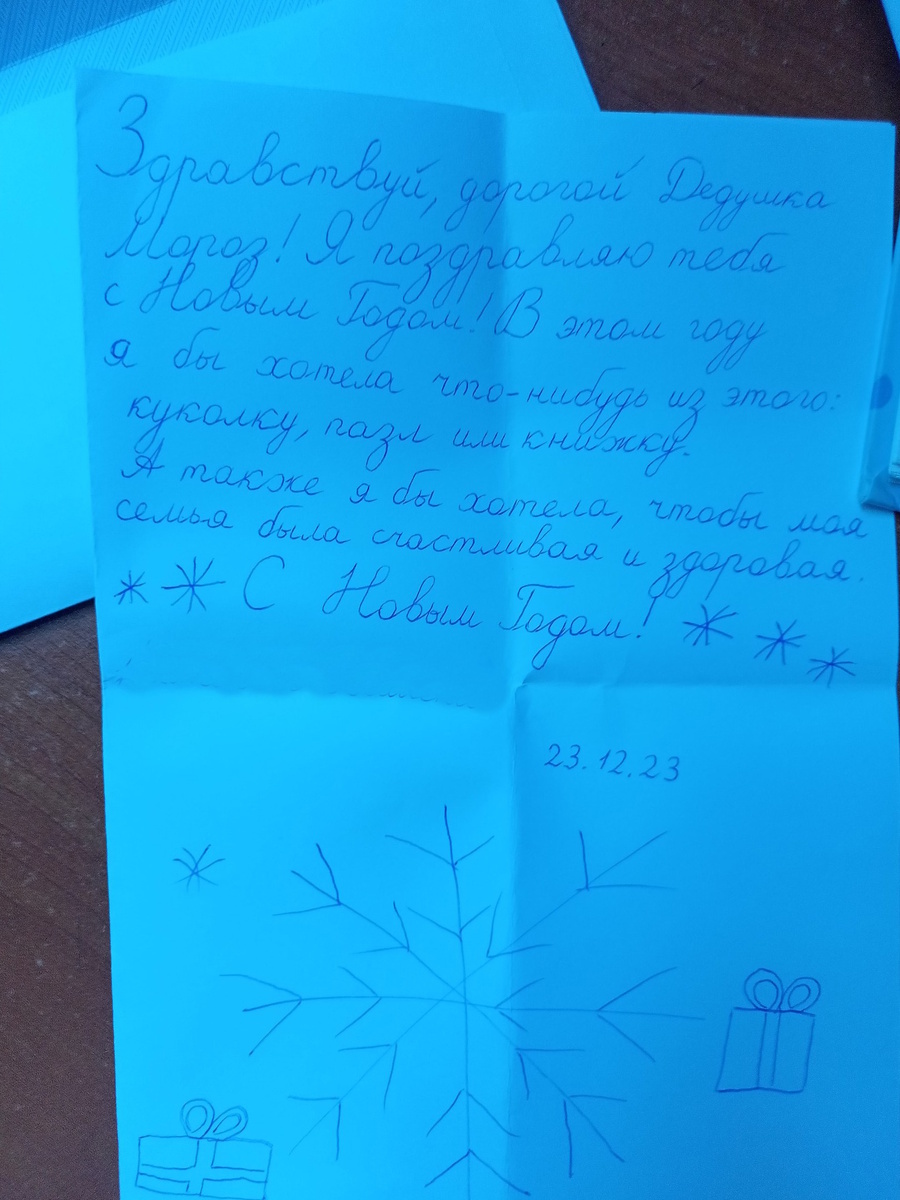 Здравствуй, дорогой Дедушка
Мороз! Я поздравляю тебя
с Новым Годом! В этом году
я бы хотела что-нибудь из этого:
куколку, пазл или книжку.
А также я бы хотела, чтобы моя
семья была счастливая и здоровая.
С Новым Годом!
23.12.23